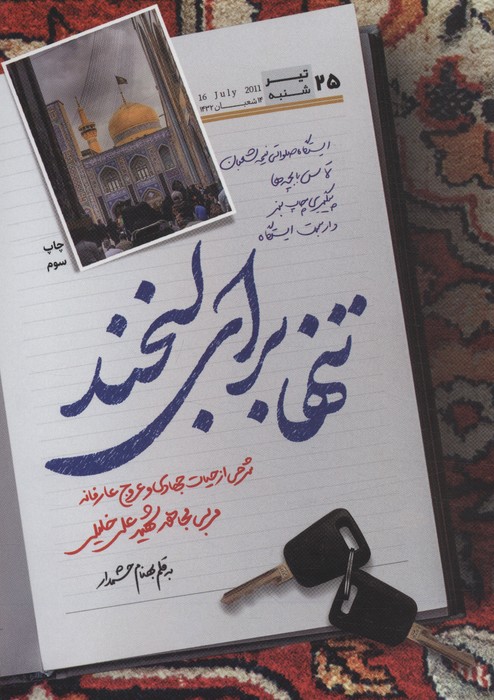 ۲۵
تیر
شنبه
16 July 2011
۱۴ شعبان ۱۴۳۲
ایستگاه صلواتی نیمه شعبان
تماس با بچه‌ها
پیگیری چاپ بنر
داربست ایستگاه
چاپ
سوم
تنها برای لبخند
شرحی از حیات جهادی و عروج عارفانه
مربی مجاهد شهید علی خلیلی
به قلم بهنام